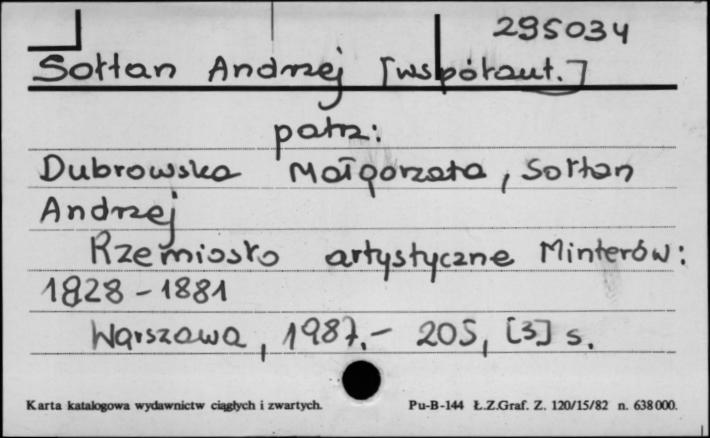 295034
Sołtan Andrzej [współaut.]
patrz:
Dubrowska Małgorzata, Sołtan
Andrzej
Rzemiosło artystyczne Minterów:
1828-1881
Warszawa, 1987.- 205, [3] s.
Karta katalogowa wydawnictw ciągłych i zwartych. Pu-B-144 Ł.Z.Graf. Z. 120/15/82 n. 638000.